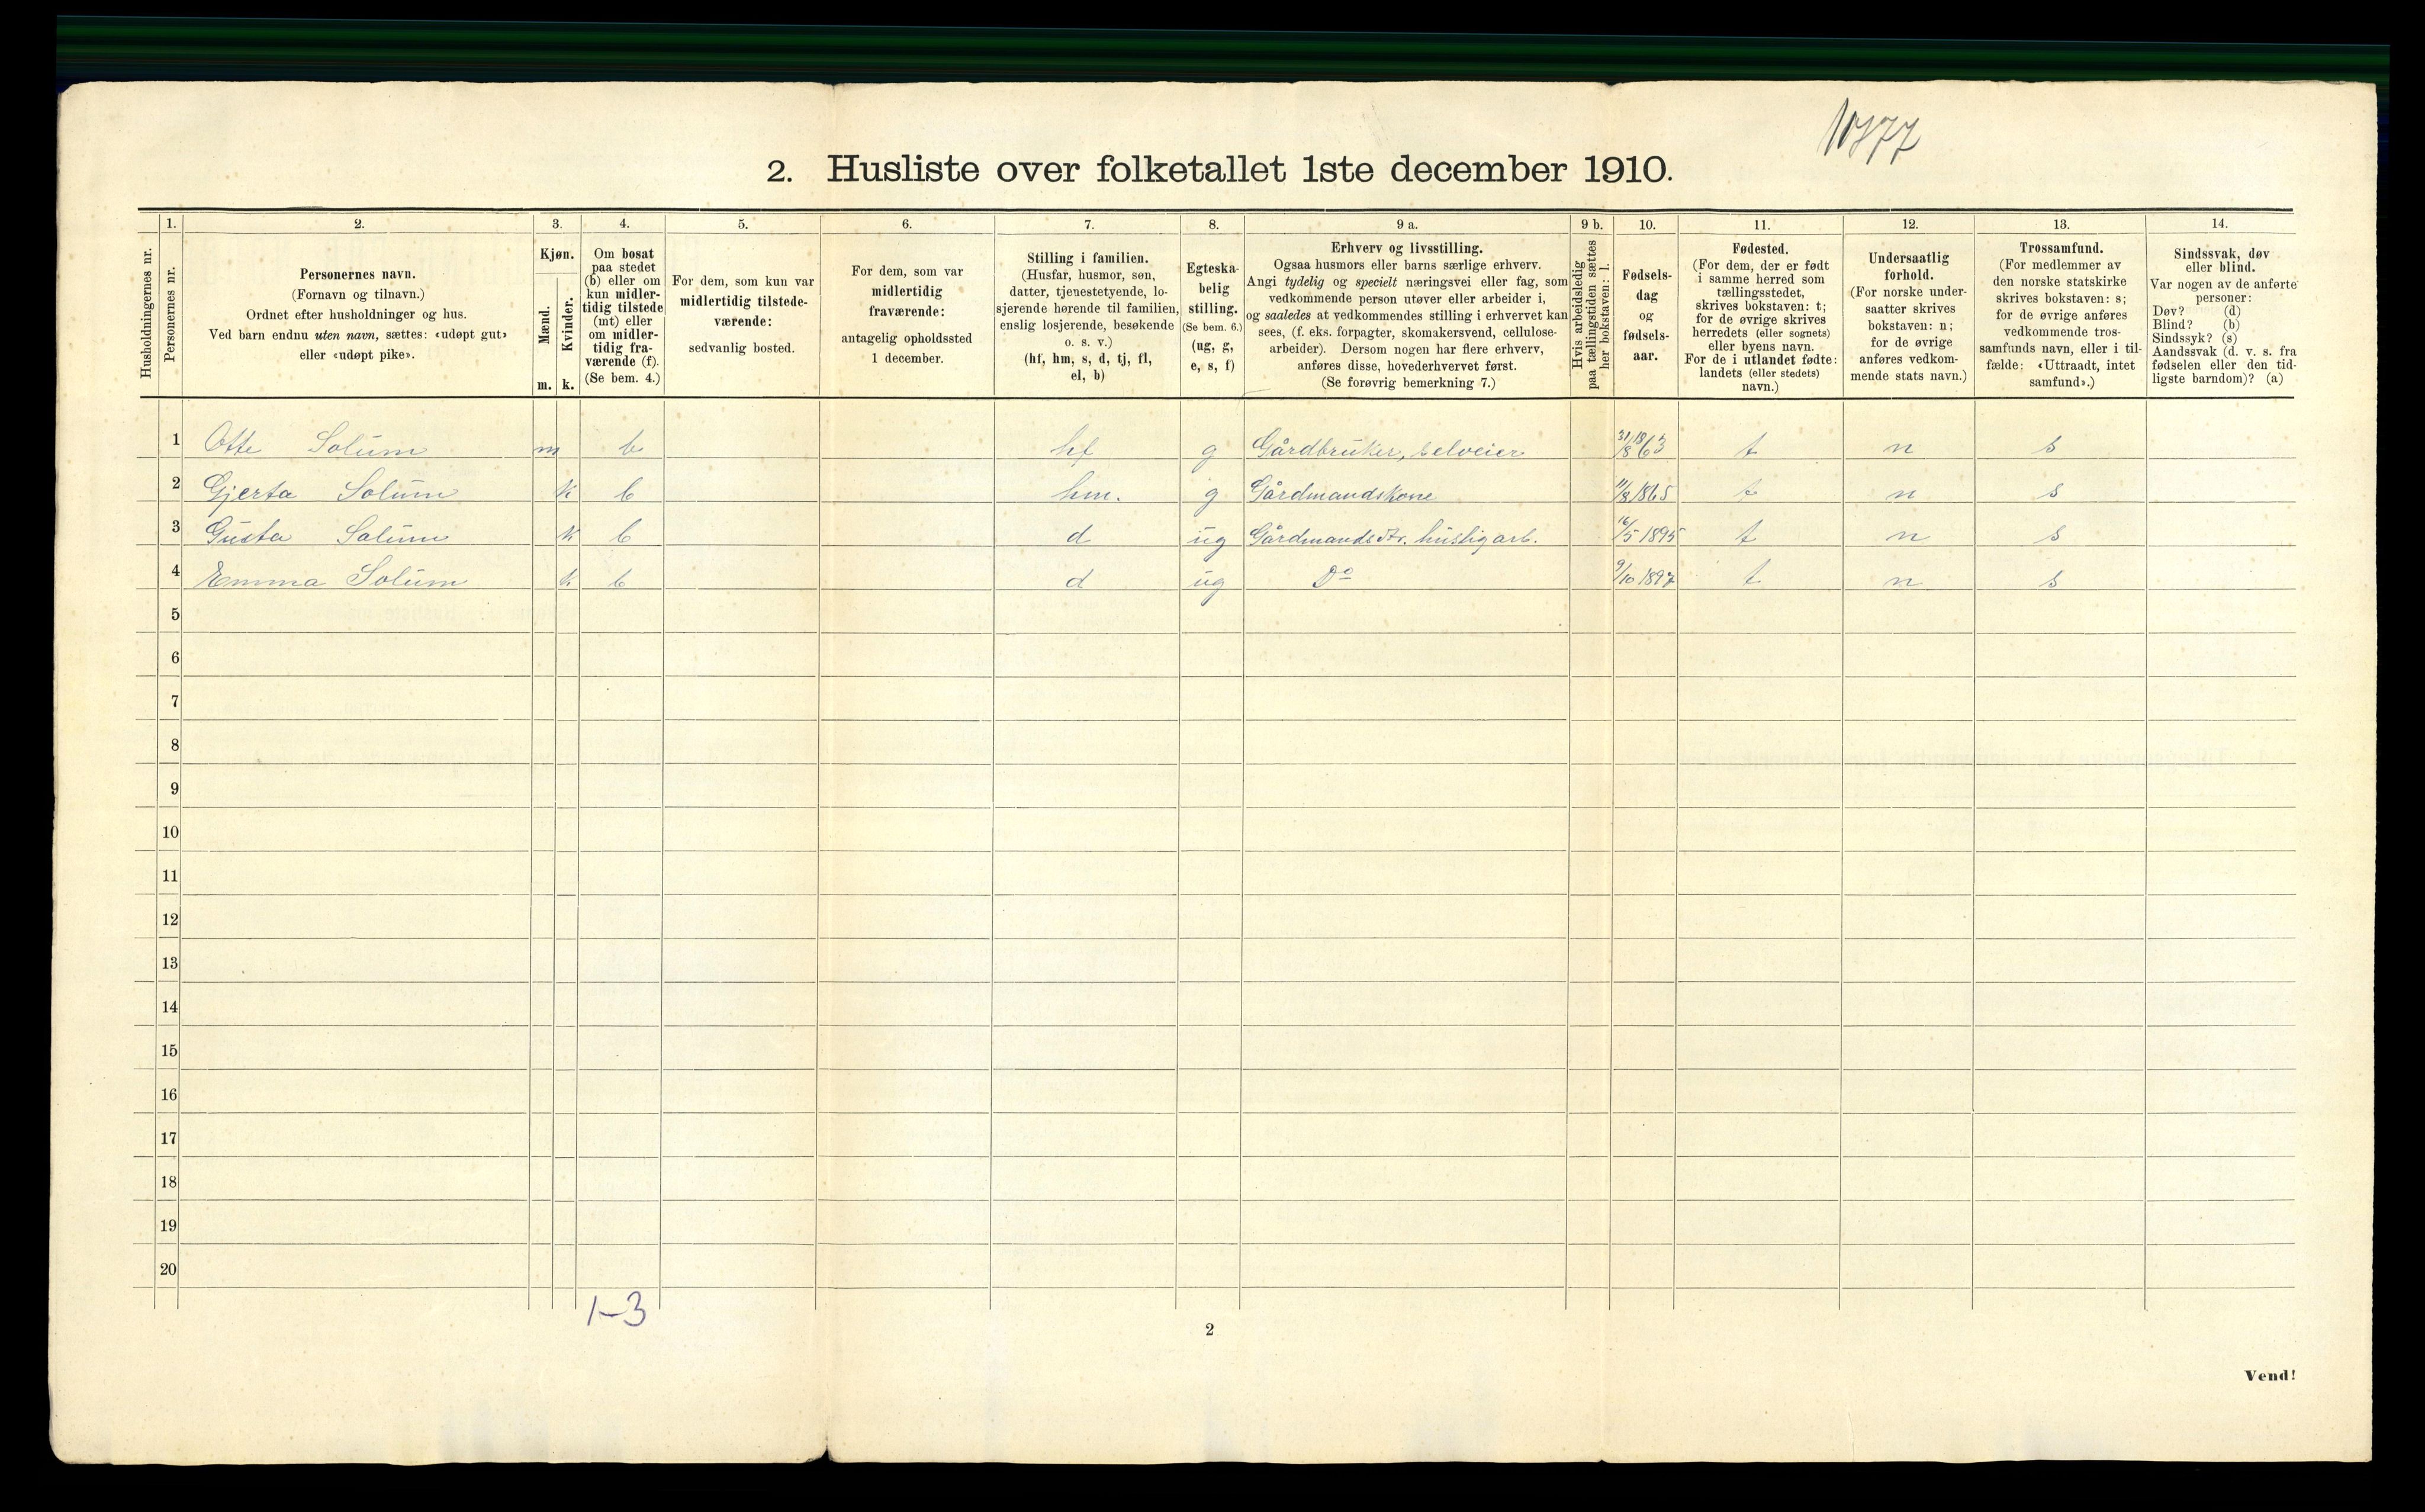 2. Husliste over folketallet 1ste december 1910.
Husholdningernes nr.
1.
Personernes nr.
2.
Personernes navn.
(Fornavn og tilnavn.)
Ordnet efter husholdninger og hus.
Ved barn endnu uten navn, sættes: «udøpt gut»
eller «udøpt pike».
3.
Kjøn.
Mænd.
Kvinder.
m. k.
4.
Om bosat
paa stedet
(b) eller om
kun midler-
tidig tilstede
(mt) eller
om midler-
tidig fra-
værende (f).
(Se bem. 4.)
5.
For dem, som kun var
midlertidig tilstede-
værende:
sedvanlig bosted.
6.
For dem, som var
midlertidig
fraværende:
antagelig opholdssted
1 december.
7.
Stilling i familien.
(Husfar, husmor, søn,
datter, tjenestetyende, lo-
sjerende hørende til familien,
enslig losjerende, besøkende
o. s. v.)
(hf, hm, s, d, tj, fl,
el, b)
8.
Egteska-
belig
stilling.
(Se bem. 6.)
(ug, g,
e, s, f)
9 a.
Erhverv og livsstilling.
Ogsaa husmors eller barns særlige erhverv.
Angi tydelig og specielt næringsvei eller fag, som
vedkommende person utøver eller arbeider i,
og saaledes at vedkommendes stilling i erhvervet kan
sees, (f. eks. forpagter, skomakersvend, cellulose-
arbeider). Dersom nogen har flere erhverv,
anføres disse, hovederhvervet først.
(Se forøvrig bemerkning 7.)
9 b.
Hvis arbeidsledig
paa tællingstiden sættes
her bokstaven: l.
10.
Fødsels-
dag
og
fødsels-
aar.
11.
Fødested.
(For dem, der er født
i samme herred som
tællingsstedet,
skrives bokstaven: t;
for de øvrige skrives
herredets (eller sognets)
eller byens navn.
For de i utlandet fødte:
landets (eller stedets)
navn.)
12.
Undersaatlig
forhold.
(For norske under-
saatter skrives
bokstaven: n;
for de øvrige
anføres vedkom-
mende stats navn.)
13.
Trossamfund.
(For medlemmer av
den norske statskirke
skrives bokstaven: s;
for de øvrige anføres
vedkommende tros-
samfunds navn, eller i til-
fælde: «Uttraadt, intet
samfund».)
14.
Sindssvak, døv
eller blind.
Var nogen av de anførte
personer:
Døv? (d)
Blind? (b)
Sindssyk? (s)
Aandssvak (d. v. s. fra
fødselen eller den tid-
ligste barndom)? (a)
1 Otte Solum m b hf g Gårdbruker, selveier 31/8 1863 t n s
2 Gjerta Solum k b hm. g Gårdmandskone 11/8 1865 t n s
3 Gusta Solum k b d ug Gårdmandsdtr. husligarb. 16/5 1895 t n s
4 Emma Solum k b d ug Do 9/10 1897 t n s
5
6
7
8
9
10
11
12
13
14
15
16
17
18
19
20
1-3
2
Vend!